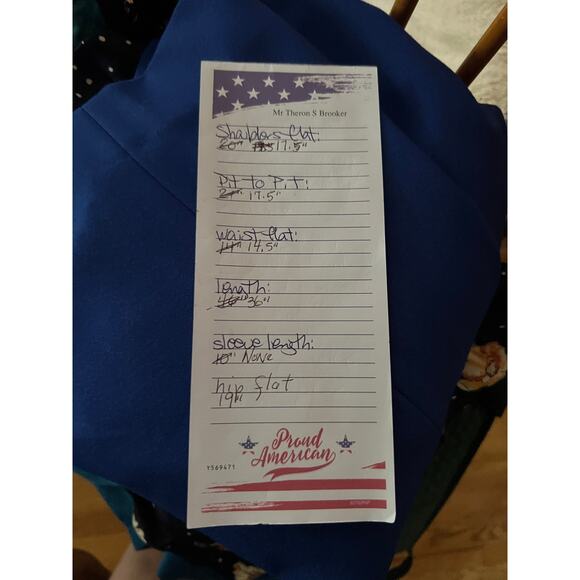 Mr Theron S Brooker
Shoulders flat:
20" 17.5"
Pit to Pit:
21" 17.5"
waist flat:
14" 14.5"
length:
36"
sleeve length:
10" None
hip flat
19"
Proud
American
Y569471